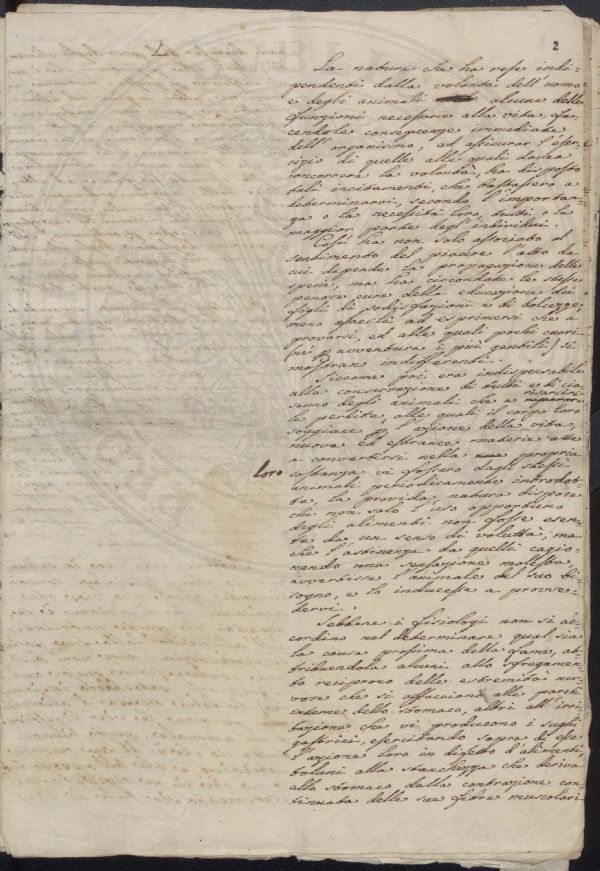 2
La natura che ha rese indi=
pendenti dalla volontà dell'uomo
e degli animali alcune delle
funzioni necessarie alla vita, fa=
cendole conseguenze immediate
dell'organismo, ad assicurar l'eser=
cizio di quelle alle quali dovea
concorrere la volontà, ha disposto
tali incitamenti, che bastassero a
determinarvi, secondo l'importan=
za o la necessità loro, tutti, o la
maggior parte degl'individui.
Così ha non solo associato al
sentimento del piacere l'atto da
cui dipende la propagazione della
specie, ma ha circondate le stesse
penose cure della educazione dei
figli di sodisfazioni e di dolcezze,
meno facili ad esprimersi che a
provarsi, ed alle quali pochi cuori
(nè p avventura i più gentili) si
mostrano indifferenti.
Siccome poi era indispensabile
alla conservazione di tutti e di cia=
scuno degli animali che a risarcire
le perdite, alle quali il corpo loro
soggiace p l'azione della vita,
nuove ed estranee materie atte
a convertirsi nella propria
loro sostanza vi fossero dagli stessi
animali periodicamente introdot=
te, la provida natura dispose
che non solo l'uso opportuno
degli alimenti non fosse esen=
te da un senso di voluttà, ma
che l'astinenza da quelli cagio=
nando una sensazione molesta,
avvertisse l'animale del suo bi=
sogno, e lo inducesse a provve=
dervi.
Sebbene i fisiologi non si ac=
cordino nel determinare qual sia
la causa prossima della fame, at=
tribuendola alcuni allo sfregamen=
to reciproco delle estremità ner=
vose che si affacciano alle pareti
interne dello stomaco, altri all'irri=
tazione che vi producono i sughi
gastrici, esercitando sopra di esse
l'azione loro in difetto d'alimenti,
taluni alla stanchezza che deriva
allo stomaco dalla contrazione con=
tinuata delle sue fibre muscolari